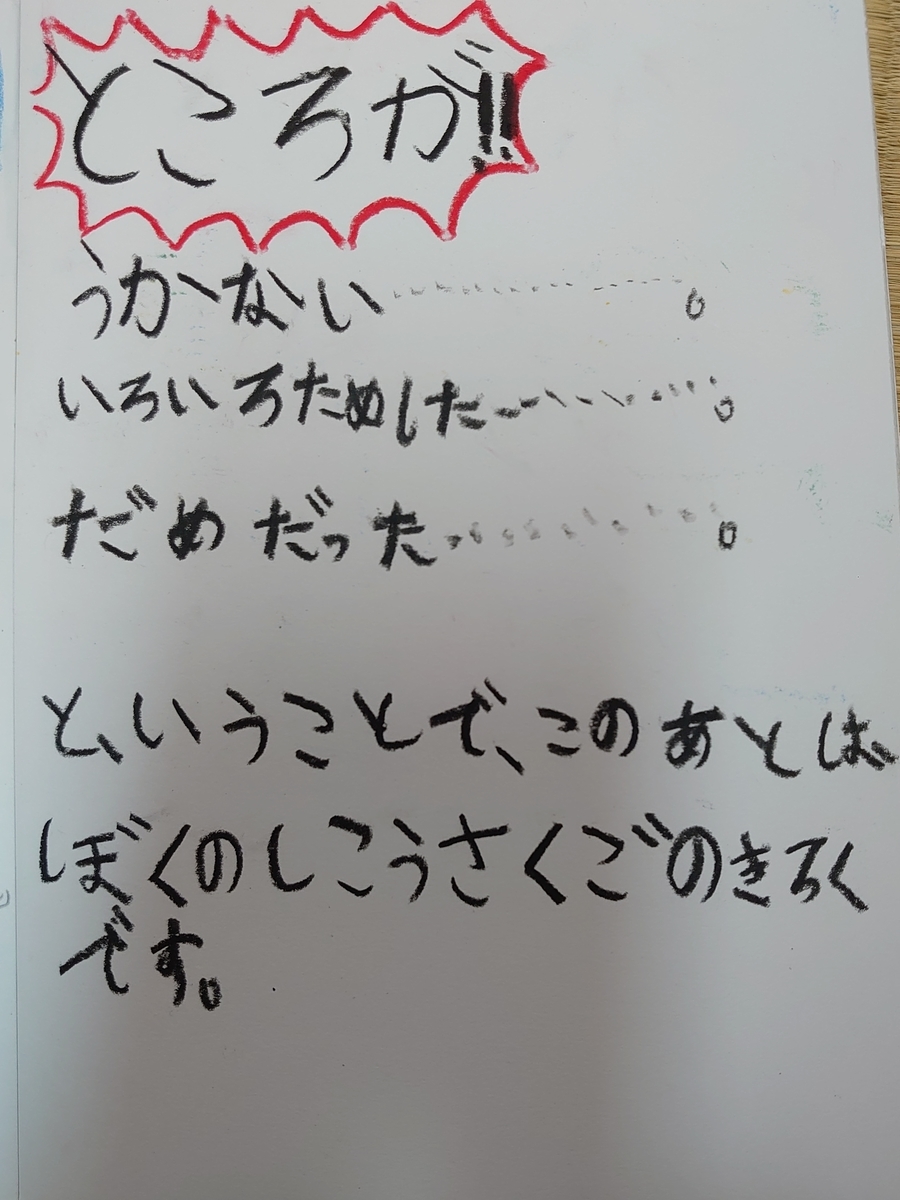 ところが!!
うかない…………。
いろいろためした…………。
だめだった…………。
と、いうことで、このあとは、
ぼくのしこうさくごのきろく
です。